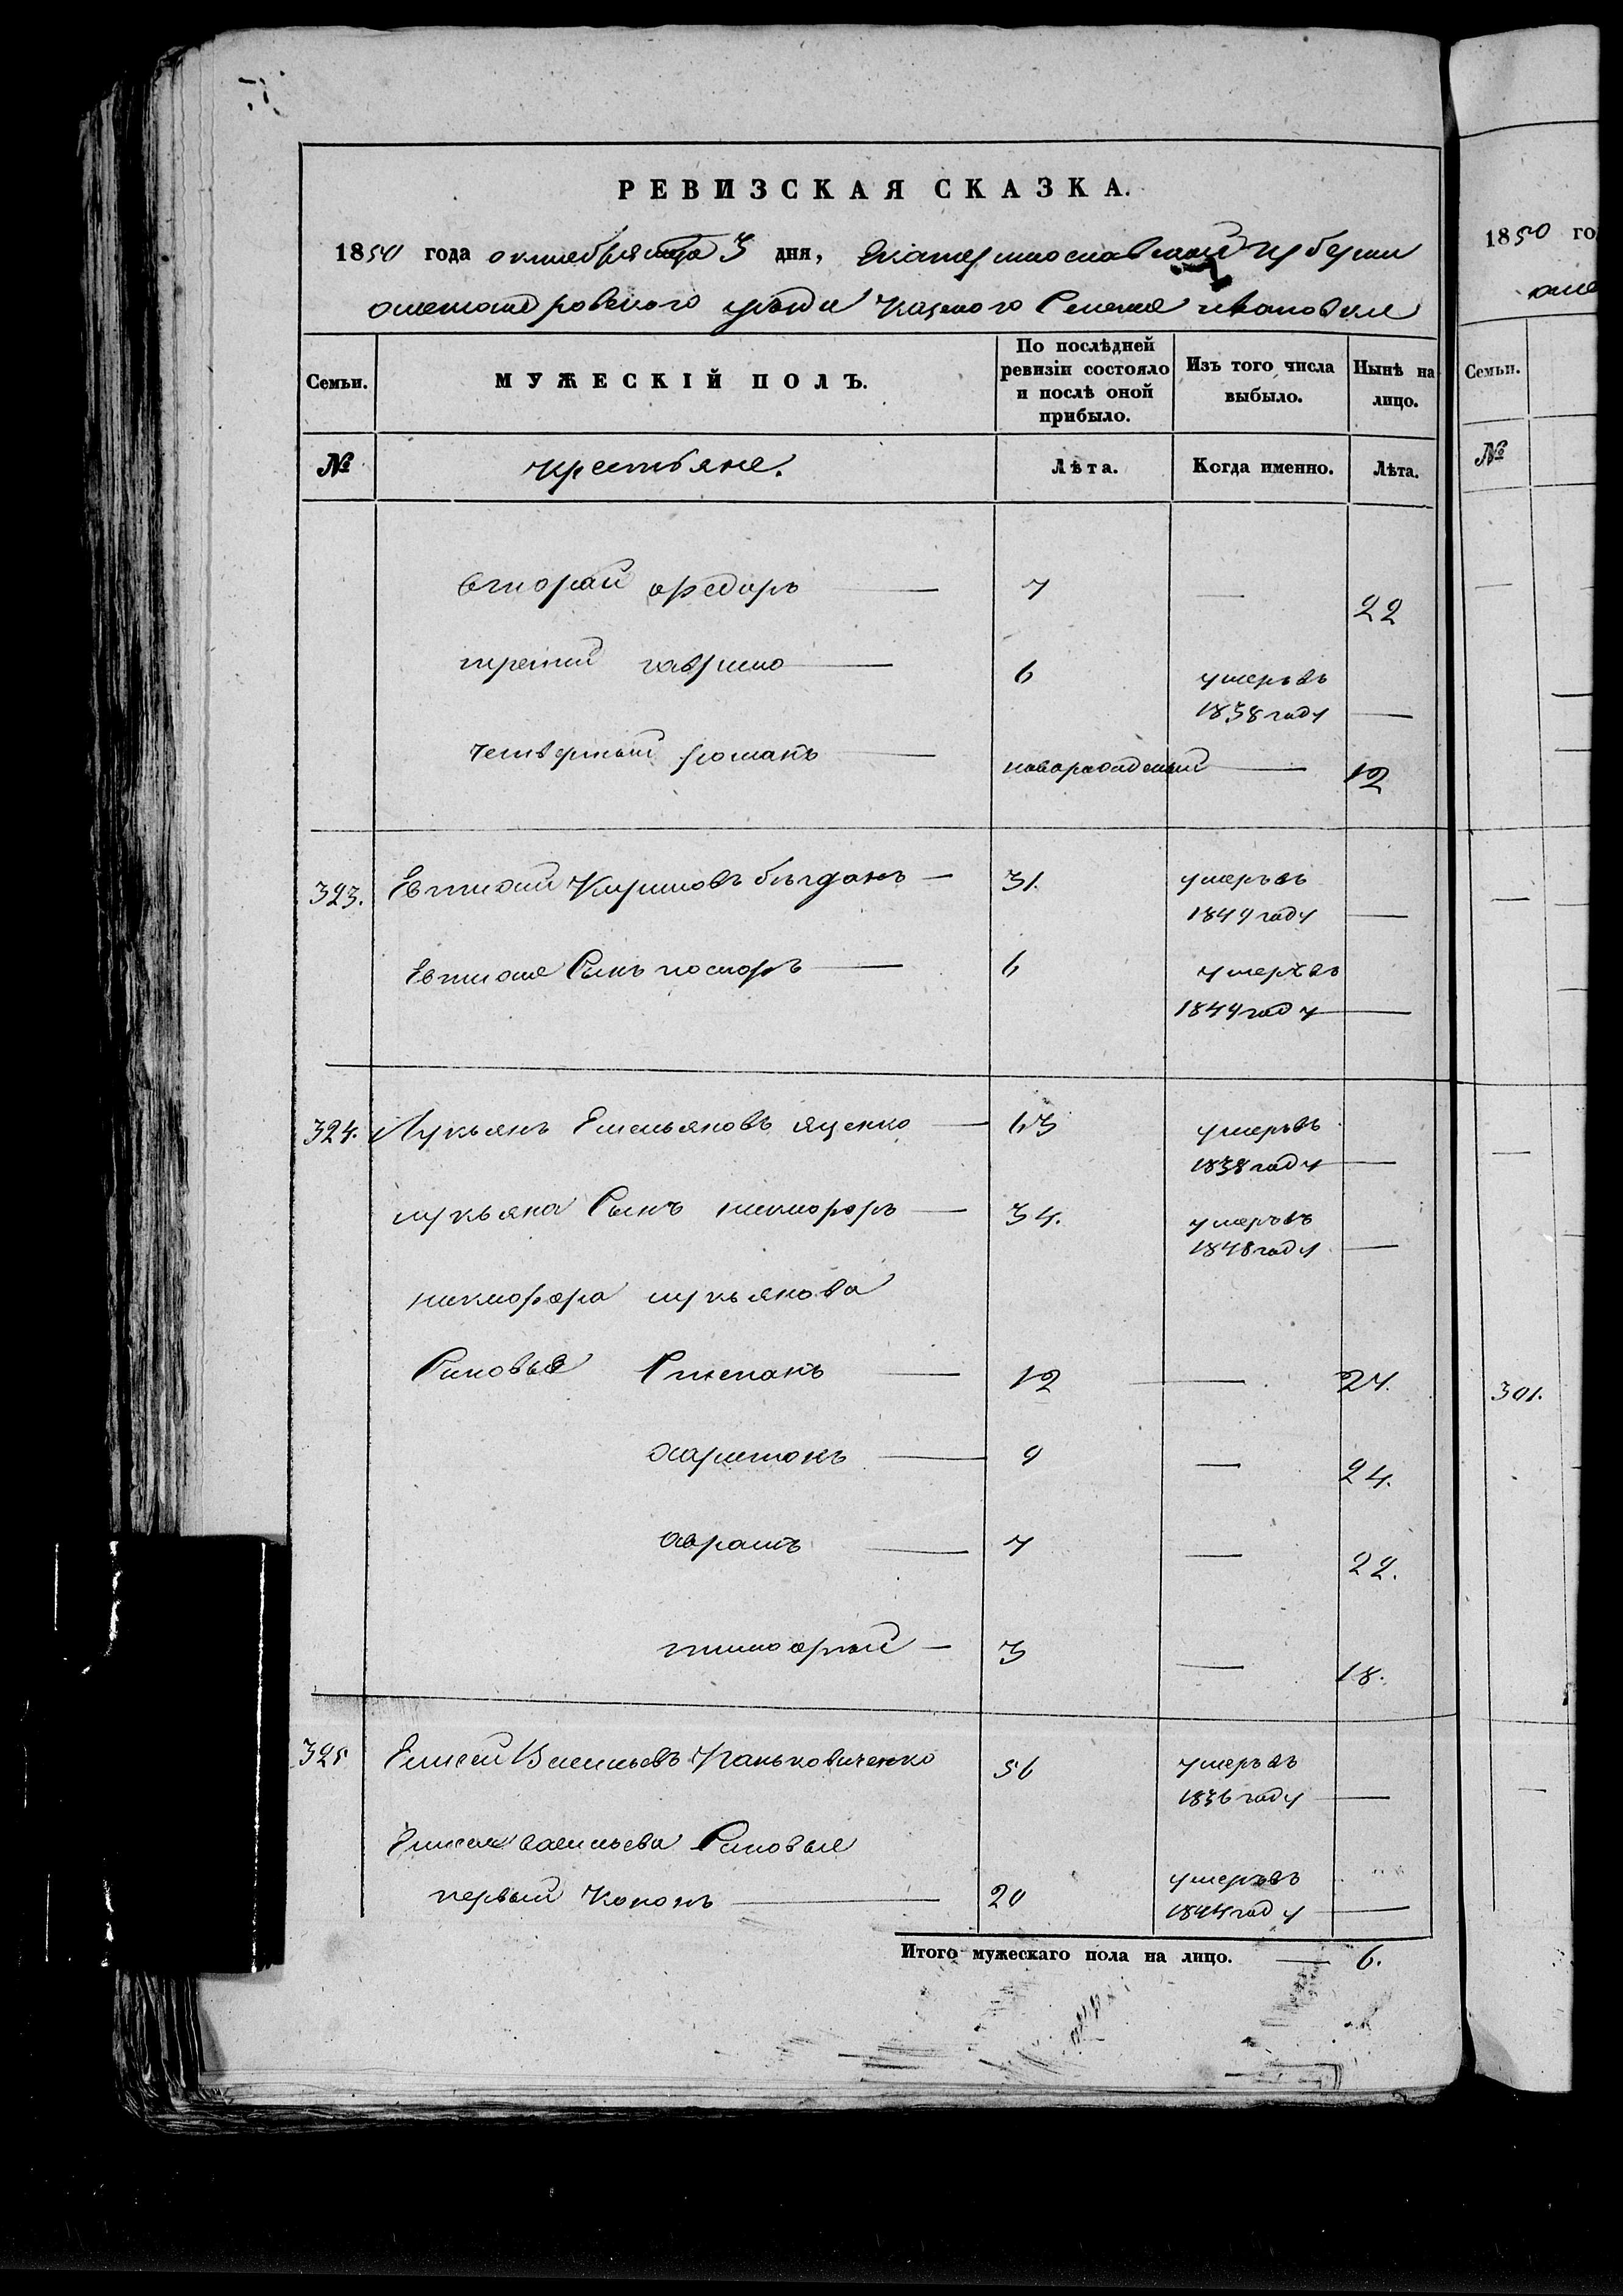 РЕВИЗСКАЯ СКАЗКА.
1850 года октября 3 дня, Екатеринославской губернии
александровского уезда казенного Селения ивановки
Семьи. МУЖЕСКІЙ ПОЛЪ. По послѣдней ревизіи состояло и послѣ оной прибыло. Изъ того числа выбыло. Нынѣ на лицо.
№ крестьяне. Лѣта. Когда именно. Лѣта.
вторай федоръ — 7 — 22
третий гаврило — 6 умеръ въ
1838 году —
четвертый романъ — новорожденый — 12
323. Евтихий Кириловъ — 31. умеръ въ
1849 году —
Сынъ — 6 умеръ въ
1849 году —
324. Лукьянъ Емельяновъ яценко — 63 умеръ въ
1838 году —
лукьяна Сынъ никифоръ — 34. умеръ въ
1848 году —
никифора лукьянова
Сыновья Степанъ — 12 — 27.
харитонъ — 9 — 24.
аврамъ — 7 — 22.
тимофей — 3 — 18.
325 Елисей Васильевъ Паньковиченко 56 умеръ въ
1836 году —
Елисея васильева Сыновья
первый Кононъ — 20 умеръ въ
1844 году —
Итого мужескаго пола на лицо. — 6.
1850 го
Семьи.
№
301.